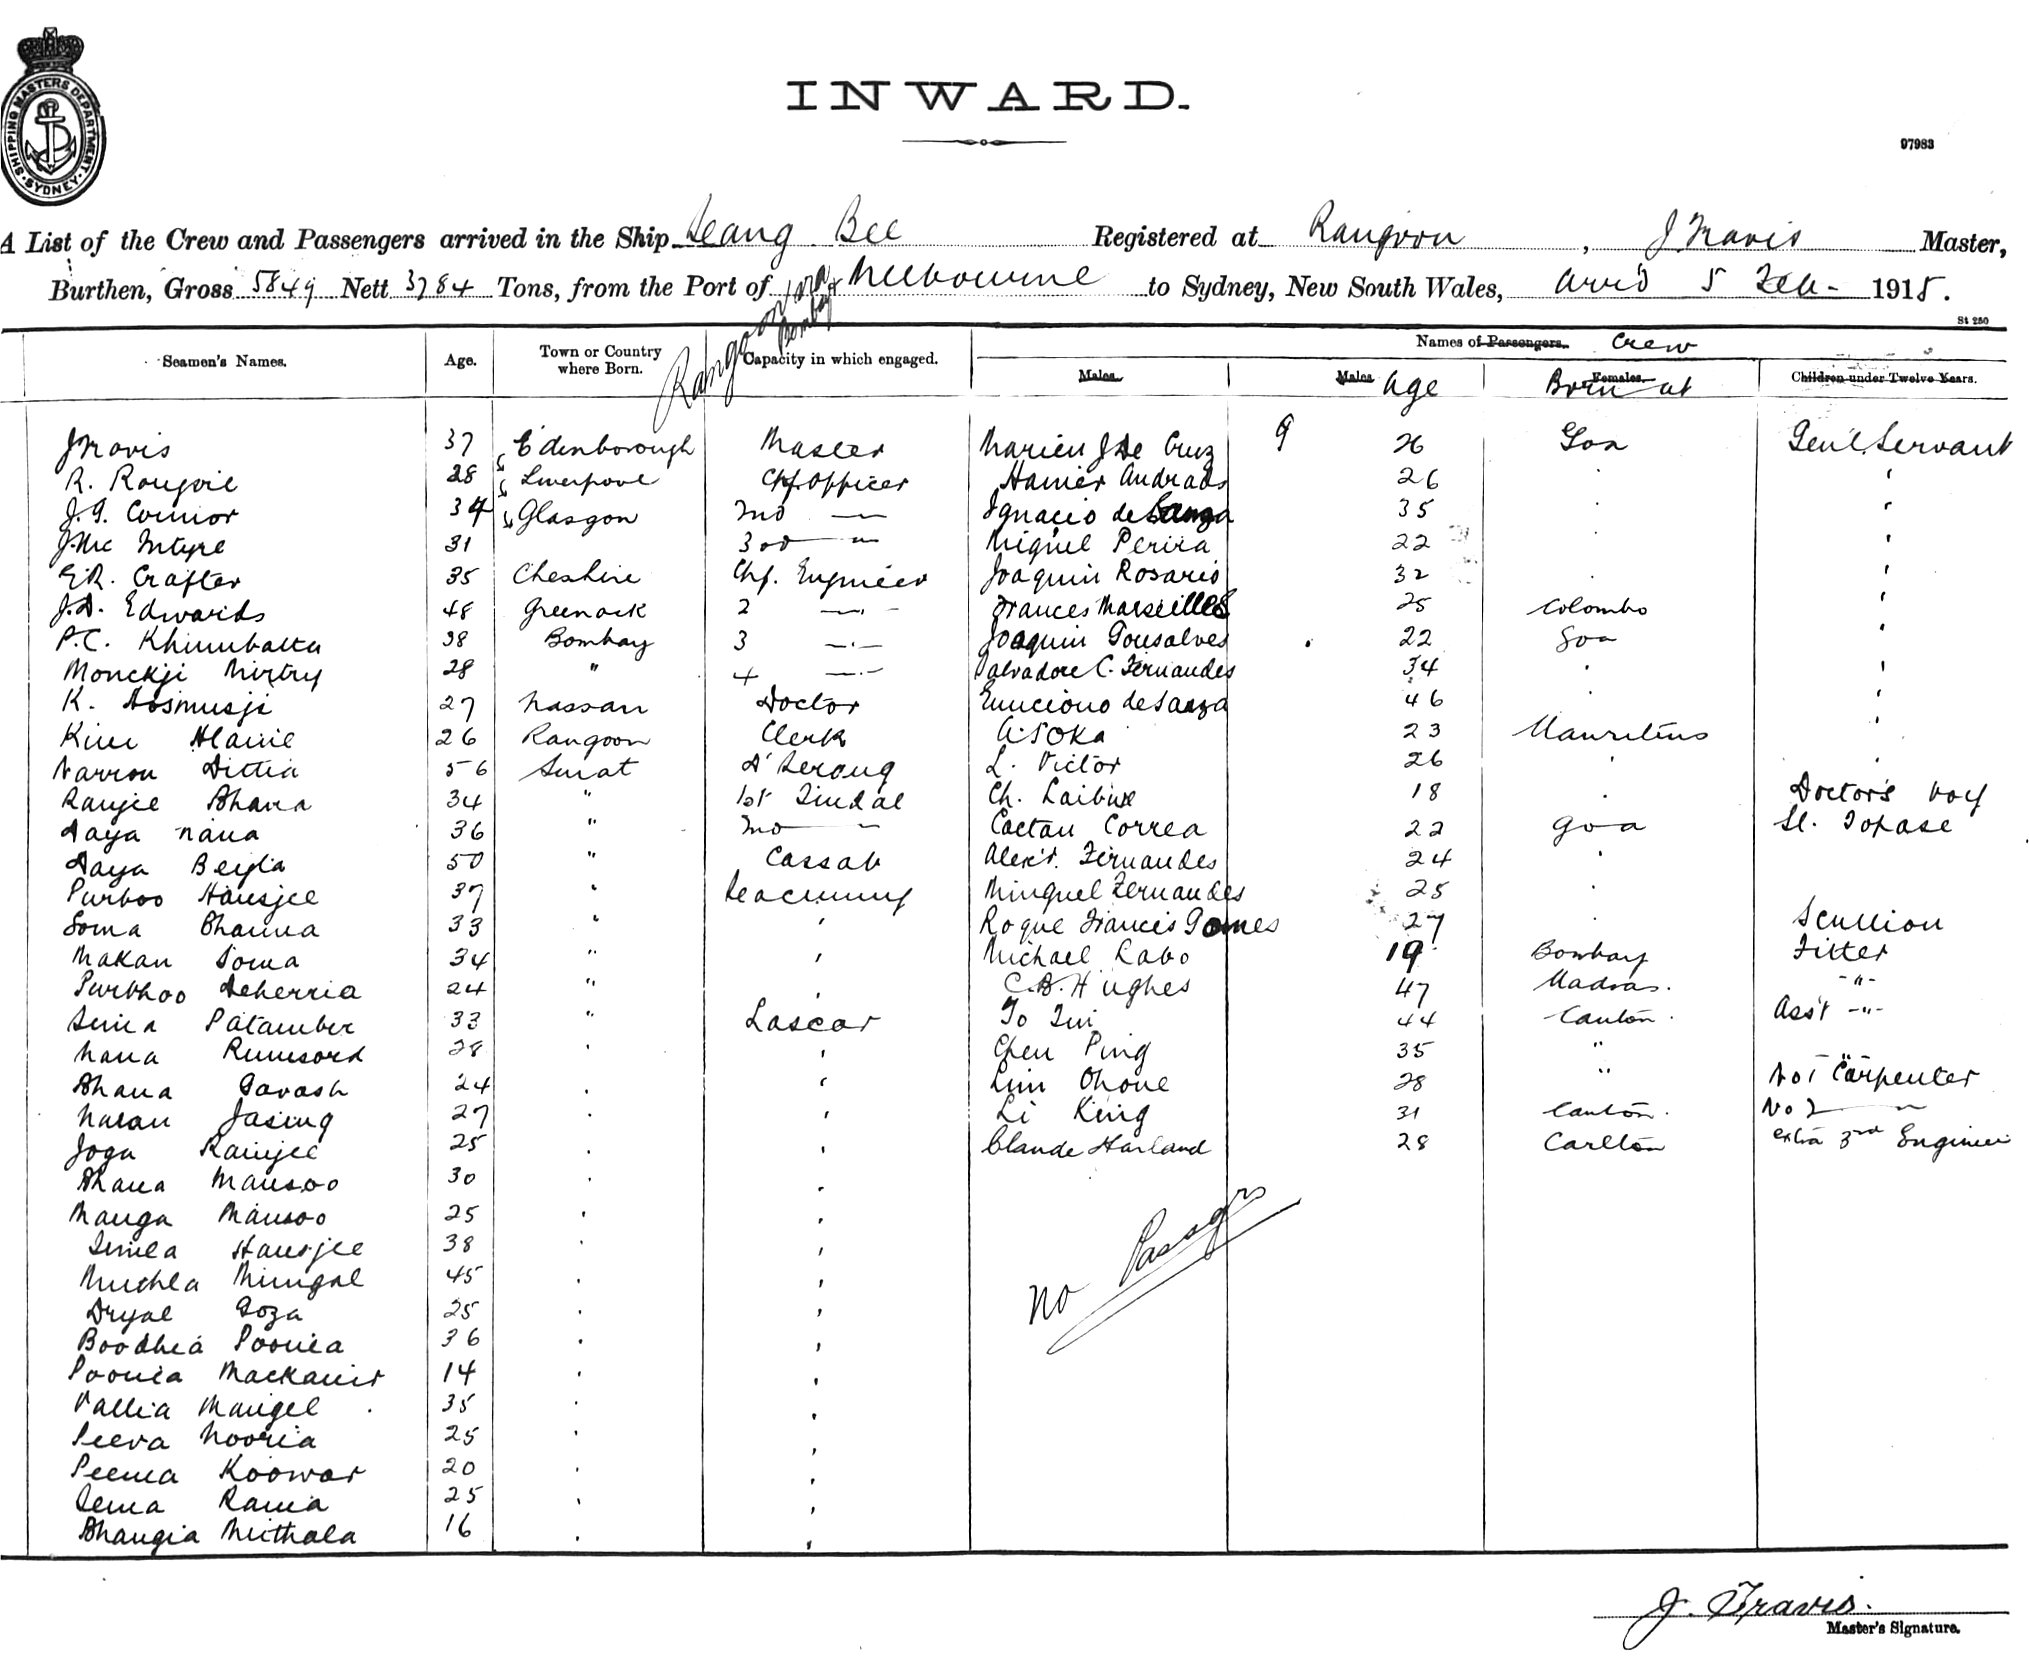 SHIPPING MASTERS DEPARTMENT · SYDNEY ·
INWARD.
97983
A List of the Crew and Passengers arrived in the Ship Seang Bee Registered at Rangoon, J Travis Master,
Burthen, Gross 5849 Nett 3784 Tons, from the Port of Rangoon Bombay & Melbourne to Sydney, New South Wales, arrd 5 Feb - 1915.
St 250
Seamen's Names. Age. Town or Country where Born. Capacity in which engaged. Names of Passengers. Crew
Males. Males Age Females. Born at Children under Twelve Years.
J Travis 37 Edenborough Master Marien J De Cruz 9 26 Goa Genl. Servant
R. 28 Liverpool Chf. Officer Andrade 26 "
J. G. Connor 34 Glasgow 2nd — Ignacio de Sanza 35 "
J. Mc Intyre 31 3rd — " Miguel Perira 22 "
E. R. Crafter 35 Cheshire Chf. Engineer Joaquin Rosario 32 "
J. D. Edwards 48 Greenock 2 — " — Frances Marseilles 25 Colombo "
P. C. Khumbatta 38 Bombay 3 — " — Joaquin Gonsalves 22 Goa "
Monckji Mistry 28 " 4 — " — Salvadore C. Fernandes 34 " "
K. Dosmusji 27 Nassari Doctor de Sanza 46 " "
26 Rangoon Clerk A. Soka 23 Mauritius "
Dittia 56 Surat D' Serang L. Victor 26 " "
Ranjee Bhana 34 " 1st Tindal Ch. 18 " Doctor's boy
Daya Nana 36 " 2nd — " Caetan Correa 22 Goa Sl. Topase
Daya 50 " Cassab Alex'r. Fernandes 24 "
Purboo Hansjee 37 " Seacunny Minguel Fernandes 25 "
Soma Bhanna 33 " " Roque Francis Gomes 27 " Scullion
Makan Soma 34 " " Michael Labo 19 Bombay Fitter
Purbhoo Deherria 24 " " C. B. Hughes 47 Madras. - " -
Patamber 33 " Lascar To 44 Canton. Ass't - " -
Nana 28 " " Chen Ping 35 " "
Dhana Gavash 24 " " Lim 28 " No 1 Carpenter
Naran Jasing 27 " " Li King 31 Canton. No 2 — "
Joga Ramjee 25 " " Claude Harland 28 Carlton extra 3rd Engineer
Dhana Mansoo 30 " "
Manga Mansoo 25 " "
Hansjee 38 " "
Mungal 45 " "
Goza 25 " "
Boodhia Poonia 36 " "
Poonia 14 " "
Vallia Mangel 35 " "
Peeva Nooria 25 " "
Peema Koowar 20 " "
Rama 25 " "
Bhangia Mithala 16 " "
No Passgrs
J. Travis.
Master's Signature.